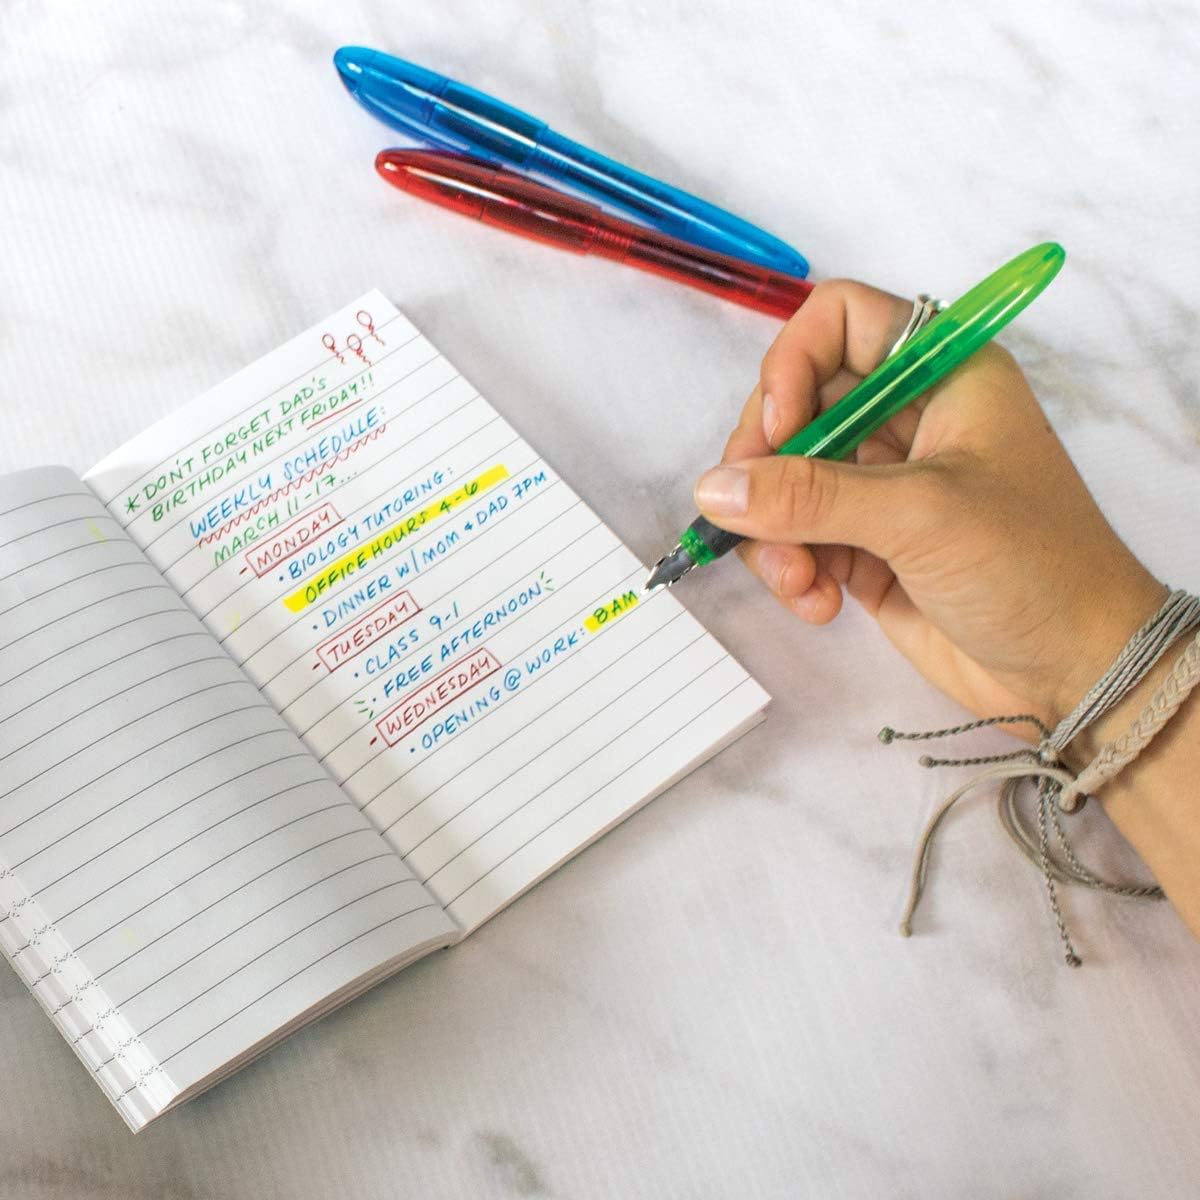 *DON'T FORGET DAD'S
BIRTHDAY NEXT FRIDAY!!
WEEKLY SCHEDULE:
MARCH 11-17...
- MONDAY
• BIOLOGY TUTORING:
OFFICE HOURS 4-6
• DINNER W/ MOM & DAD 7PM
- TUESDAY
• CLASS 9-1
• FREE AFTERNOON
- WEDNESDAY
• OPENING @ WORK: 8AM